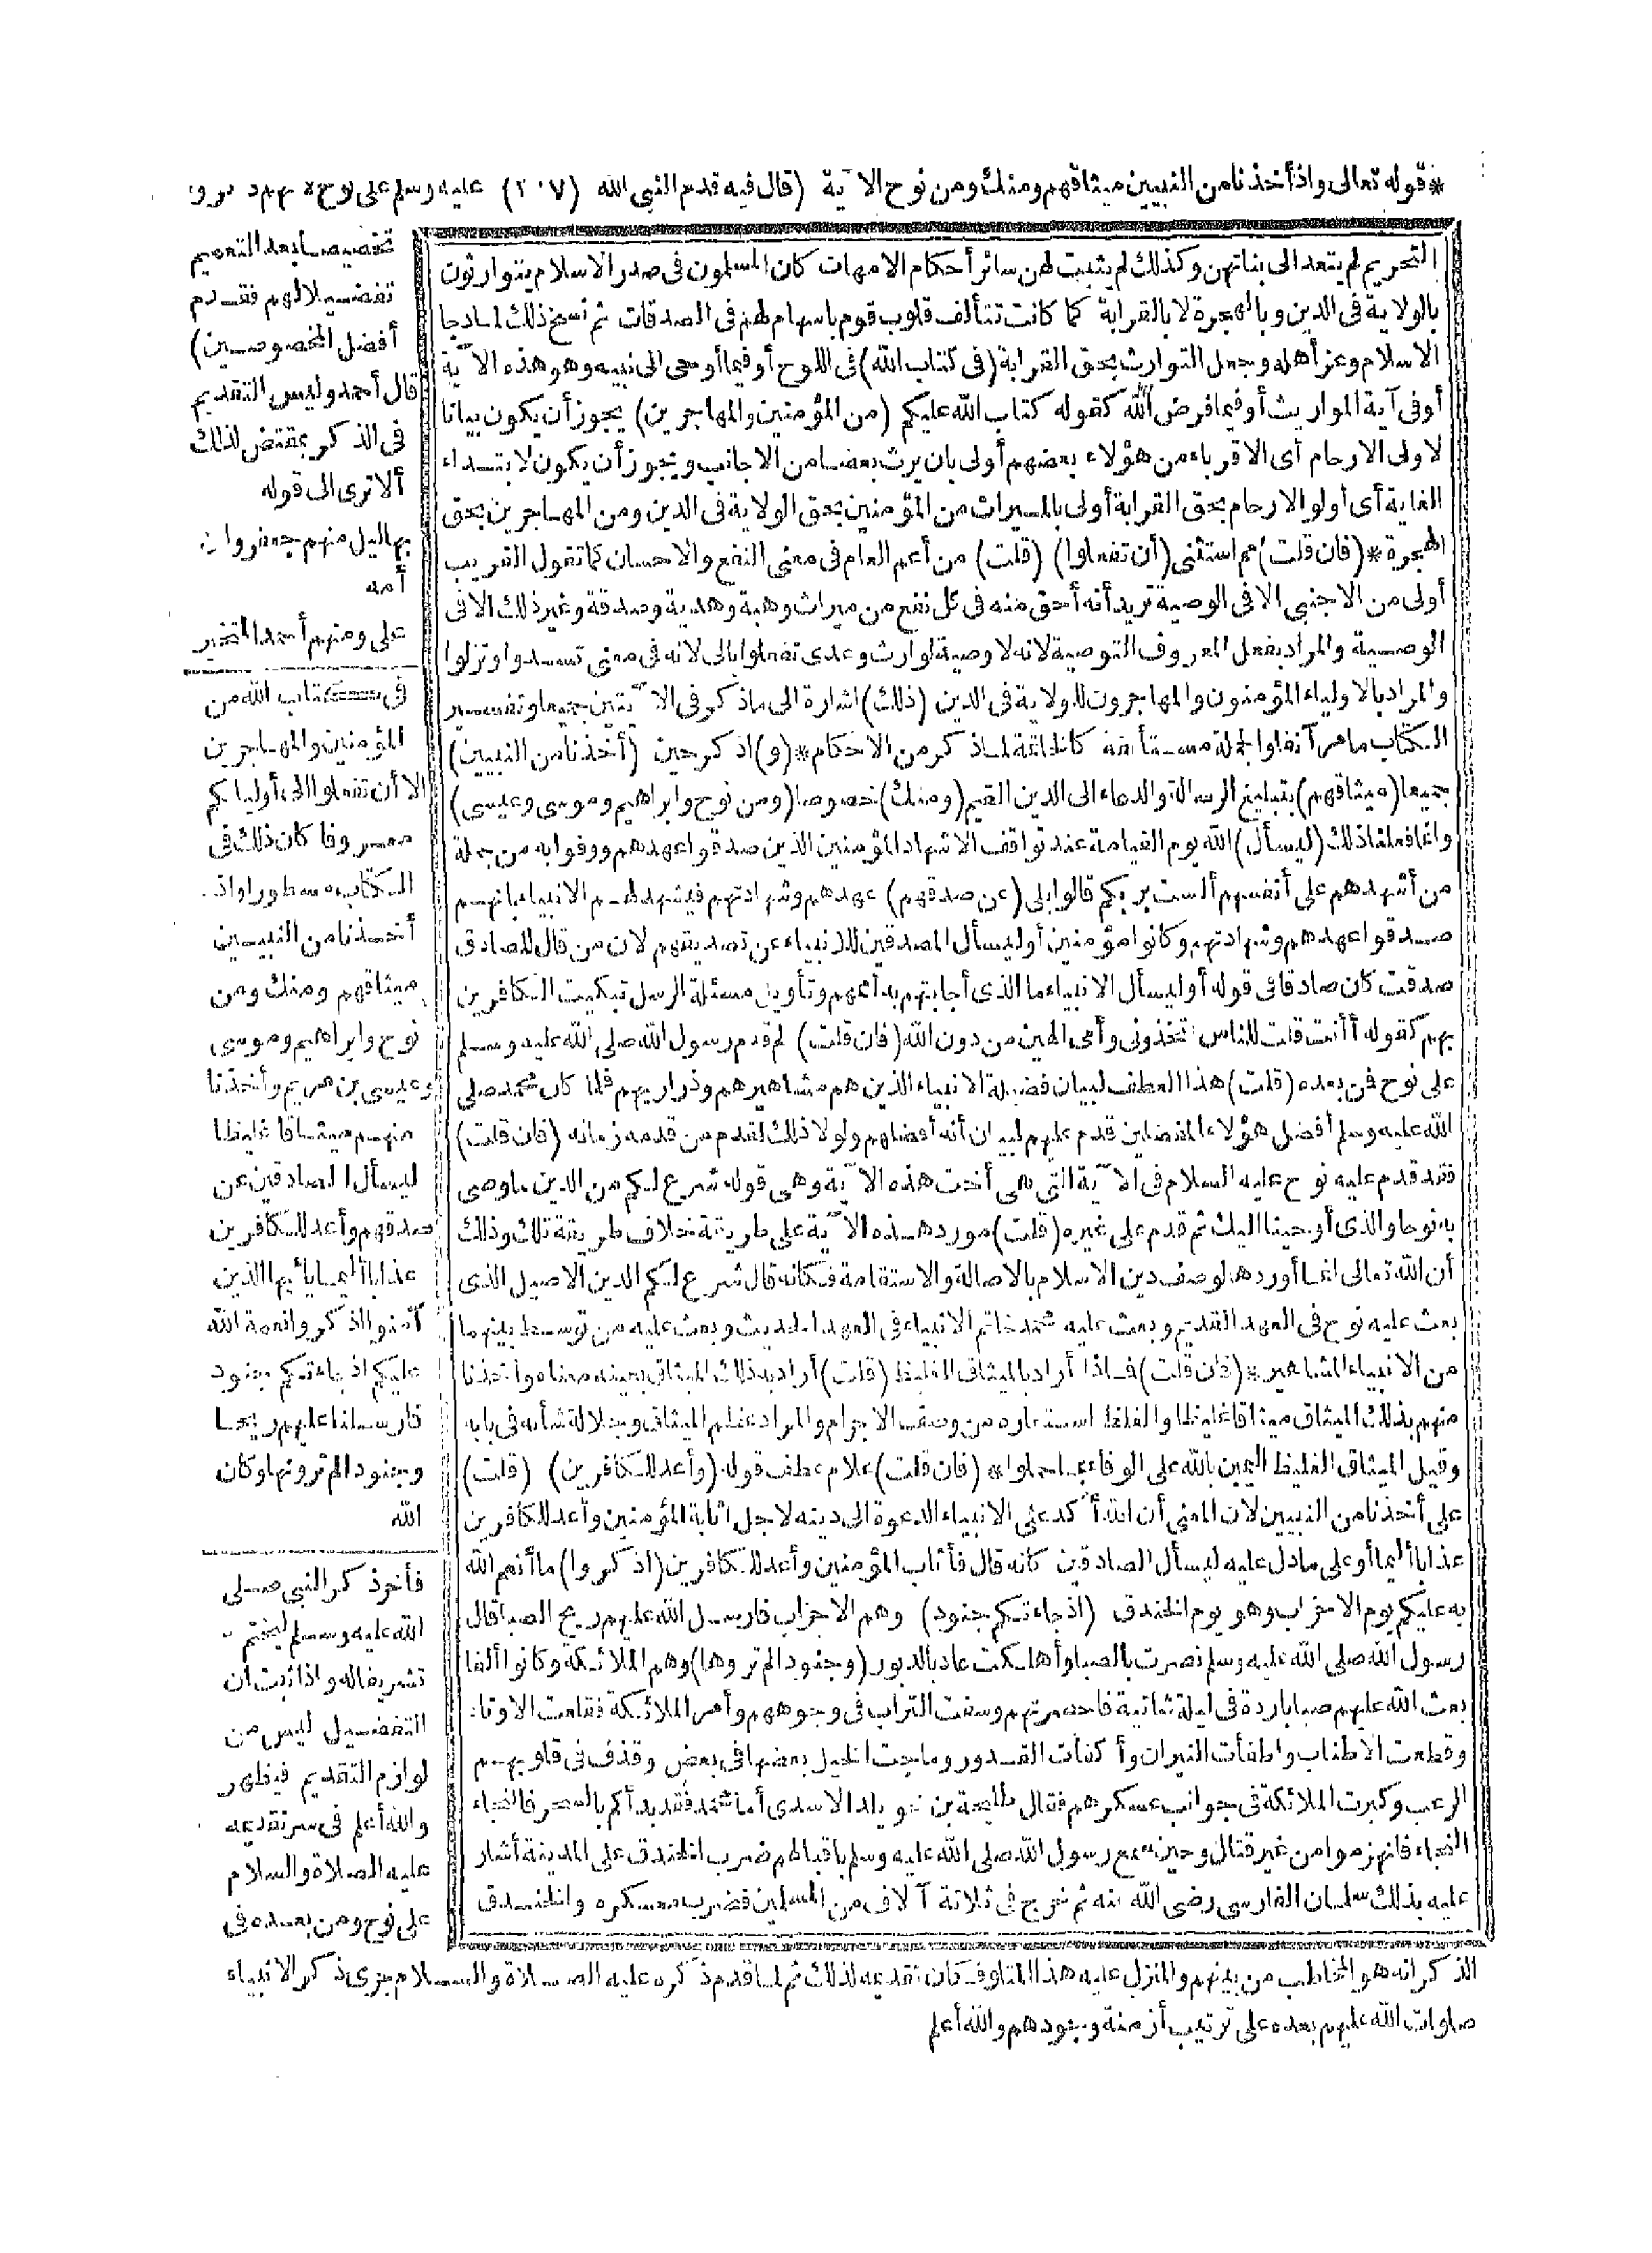 *قوله تعالى واذ أخذنا من النبيين ميثاقهم ومنك ومن نوح الآية (قال فيه قدم النبي الله (٢٠٧) عليه وسلم على نوح
التحريم لم يتعد الى بناتهن وكذلك لم يثبت لهن سائر أحكام الامهات كان المسلمون فى صدر الاسلام يتوارثون
بالولاية فى الدين وبالهجرة لا بالقرابة كما كانت تتألف قلوب قوم باسهام لهم فى الصدقات ثم نسخ ذلك لما دجا
الاسلام وعز أهله وجعل التوارث بحق القرابة (فى كتاب الله) فى اللوح أو فيما أوحى الى نبيه وهو هذه الآية
أو فى آية المواريث أو فيما فرض الله كقوله كتاب الله عليكم (من المؤمنين والمهاجرين) يجوز أن يكون بيانا
لاولى الارحام أى الاقرباء من هؤلاء بعضهم أولى بان يرث بعضا من الاجانب ويجوز أن يكون لابتداء
الغاية أى أولو الارحام بحق القرابة أولى بالميراث من المؤمنين بحق الولاية فى الدين ومن المهاجرين بحق
الهجرة * (فان قلت) مم استثنى (أن تفعلوا) (قلت) من أعم العام فى معنى النفع والاحسان كما تقول القريب
أولى من الاجنبى الا فى الوصية تريد أنه أحق منه فى كل نفع من ميراث وهبة وهدية وصدقة وغير ذلك الا فى
الوصية والمراد بفعل المعروف التوصية لانه لا وصية لوارث وعدى تفعلوا بالى لانه فى معنى تسدوا وتزلوا
والمراد بالاولياء المؤمنون والمهاجرون للولاية فى الدين (ذلك) اشارة الى ما ذكر فى الآيتين جميعا وتفسير
الكتاب ما مر آنفا والجملة مستأنفة كالخاتمة لما ذكر من الاحكام * (و) اذكر حين (أخذنا من النبيين)
جميعا (ميثاقهم) بتبليغ الرسالة والدعاء الى الدين القيم (ومنك) خصوصا (ومن نوح وابراهيم وموسى وعيسى)
وانما فعلنا ذلك (ليسأل) الله يوم القيامة عند تواقف الاشهاد المؤمنين الذين صدقوا عهدهم ووفوا به من جملة
من أشهدهم على أنفسهم ألست بربكم قالوا بلى (عن صدقهم) عهدهم وشهادتهم فيشهد لهم الانبياء بانهم
صدقوا عهدهم وشهادتهم وكانوا مؤمنين أو ليسأل المصدقين للانبياء عن تصديقهم لان من قال للصادق
صدقت كان صادقا فى قوله أو ليسأل الانبياء ما الذى أجابتهم به أممهم وتأويل مسئلة الرسل تبكيت الكافرين
بهم كقوله أأنت قلت للناس اتخذونى وأمى الهين من دون الله (فان قلت) لم قدم رسول الله صلى الله عليه وسلم
على نوح فمن بعده (قلت) هذا العطف لبيان فضيلة الانبياء الذين هم مشاهيرهم وذراريهم فلما كان محمد صلى
الله عليه وسلم أفضل هؤلاء المفضلين قدم عليهم لبيان أنه أفضلهم ولولا ذلك لقدم من قدمه زمانه (فان قلت)
فقد قدم عليه نوح عليه السلام فى الآية التى هى أخت هذه الآية وهى قوله شرع لكم من الدين ما وصى
به نوحا والذى أوحينا اليك ثم قدم على غيره (قلت) مورد هذه الآية على طريقة خلاف طريقة تلك وذلك
أن الله تعالى انما أوردها لوصف دين الاسلام بالاصالة والاستقامة فكأنه قال شرع لكم الدين الاصيل الذى
بعث عليه نوح فى العهد القديم وبعث عليه محمد خاتم الانبياء فى العهد الحديث وبعث عليه من توسط بينهما
من الانبياء المشاهير * (فان قلت) فماذا أراد بالميثاق الغليظ (قلت) أراد به ذلك الميثاق بعينه معناه وأخذنا
منهم بذلك الميثاق ميثاقا غليظا والغلظ استعارة من وصف الاجرام والمراد عظم الميثاق وجلالة شأنه فى بابه
وقيل الميثاق الغليظ اليمين بالله على الوفاء بما حملوا * (فان قلت) علام عطف قوله (وأعد للكافرين) (قلت)
على أخذنا من النبيين لان المعنى أن الله أكد على الانبياء الدعوة الى دينه لاجل اثابة المؤمنين وأعد للكافرين
عذابا أليما أو على ما دل عليه ليسأل الصادقين كانه قال فأثاب المؤمنين وأعد للكافرين (اذكروا) ما أنعم الله
به عليكم يوم الاحزاب وهو يوم الخندق (اذ جاءتكم جنود) وهم الاحزاب فارسل الله عليهم ريح الصبا قال
رسول الله صلى الله عليه وسلم نصرت بالصبا وأهلكت عاد بالدبور (وجنودا لم تروها) وهم الملائكة وكانوا ألفا
بعث الله عليهم صبا باردة فى ليلة شاتية فاحصرتهم وسفت التراب فى وجوههم وأمر الملائكة فقلعت الاوتاد
وقطعت الاطناب وأطفأت النيران وأكفأت القدور وماجت الخيل بعضها فى بعض وقذف فى قلوبهم
الرعب وكبرت الملائكة فى جوانب عسكرهم فقال طليحة بن خويلد الاسدى أما محمد فقد بدأكم بالسحر فالنجاء
النجاء فانهزموا من غير قتال وحين سمع رسول الله صلى الله عليه وسلم باقبالهم ضرب الخندق على المدينة أشار
عليه بذلك سلمان الفارسى رضى الله عنه ثم خرج فى ثلاثة آلاف من المسلمين فضرب معسكره والخندق
تخصيصا بعد التعميم
تفضيلا لهم فقدم
أفضل المخصوصين)
قال أحمد وليس التقديم
فى الذكر بمقتض لذلك
ألا ترى الى قوله
بهاليل منهم جعفر وابن
أمه
على ومنهم أحمد المتخير
فى كتاب الله من
المؤمنين والمهاجرين
الا أن تفعلوا الى أوليائكم
معروفا كان ذلك فى
الكتاب مسطورا واذ
أخذنا من النبيين
ميثاقهم ومنك ومن
نوح وابراهيم وموسى
وعيسى بن مريم وأخذنا
منهم ميثاقا غليظا
ليسأل الصادقين عن
صدقهم وأعد للكافرين
عذابا أليما يا أيها الذين
آمنوا اذكروا نعمة الله
عليكم اذ جاءتكم جنود
فارسلنا عليهم ريحا
وجنودا لم تروها وكان
الله
فأخر ذكر النبى صلى
الله عليه وسلم ليختم به
تشريفا له واذا ثبت أن
التفضيل ليس من
لوازم التقديم فيظهر
والله أعلم فى سر تقديمه
عليه الصلاة والسلام
على نوح ومن بعده فى
الذكر انه هو المخاطب من بينهم والمنزل عليه هذا المتلو فكان تقديمه لذلك ثم لما قدم ذكره عليه الصلاة والسلام جرى ذكر الانبياء
صلوات الله عليهم بعده على ترتيب أزمنة وجودهم والله أعلم